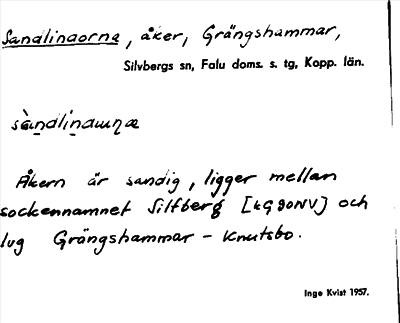 Sandlindorna, åker, Grängshammar,
Silvbergs sn, Falu doms. s. tg, Kopp. län.
Åkern är sandig, ligger mellan
sockennamnet Silfberg [kG90NV] och
lug Grängshammar - Knutsbo.
Inge Kvist 1957.